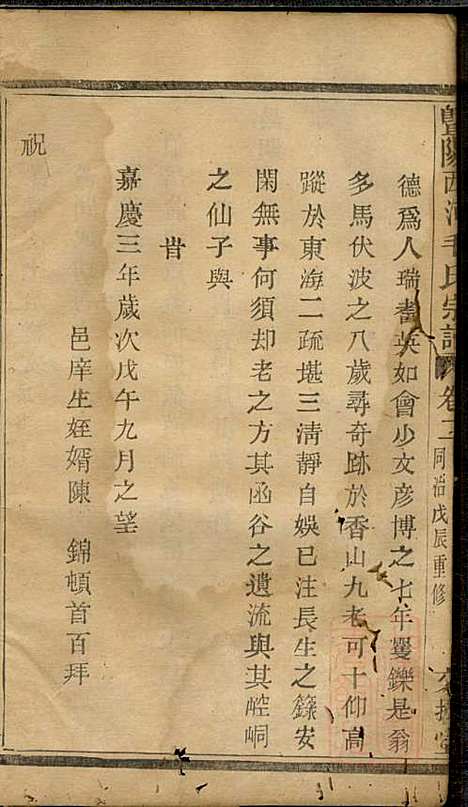 暨陽西河毛氏宗譜 卷二 同治戊辰重修
德爲人瑞耆英如會少文彥博之七年矍鑠是翁
多馬伏波之八歲尋奇跡於香山九老可十仰高
蹤於東海二疏堪三清靜自娛已注長生之籙安
閑無事何須却老之方其函谷之遺流與其崆峒
之仙子與
旹
嘉慶三年歲次戊午九月之望
邑庠生姪婿陳 錦頓首百拜
祝